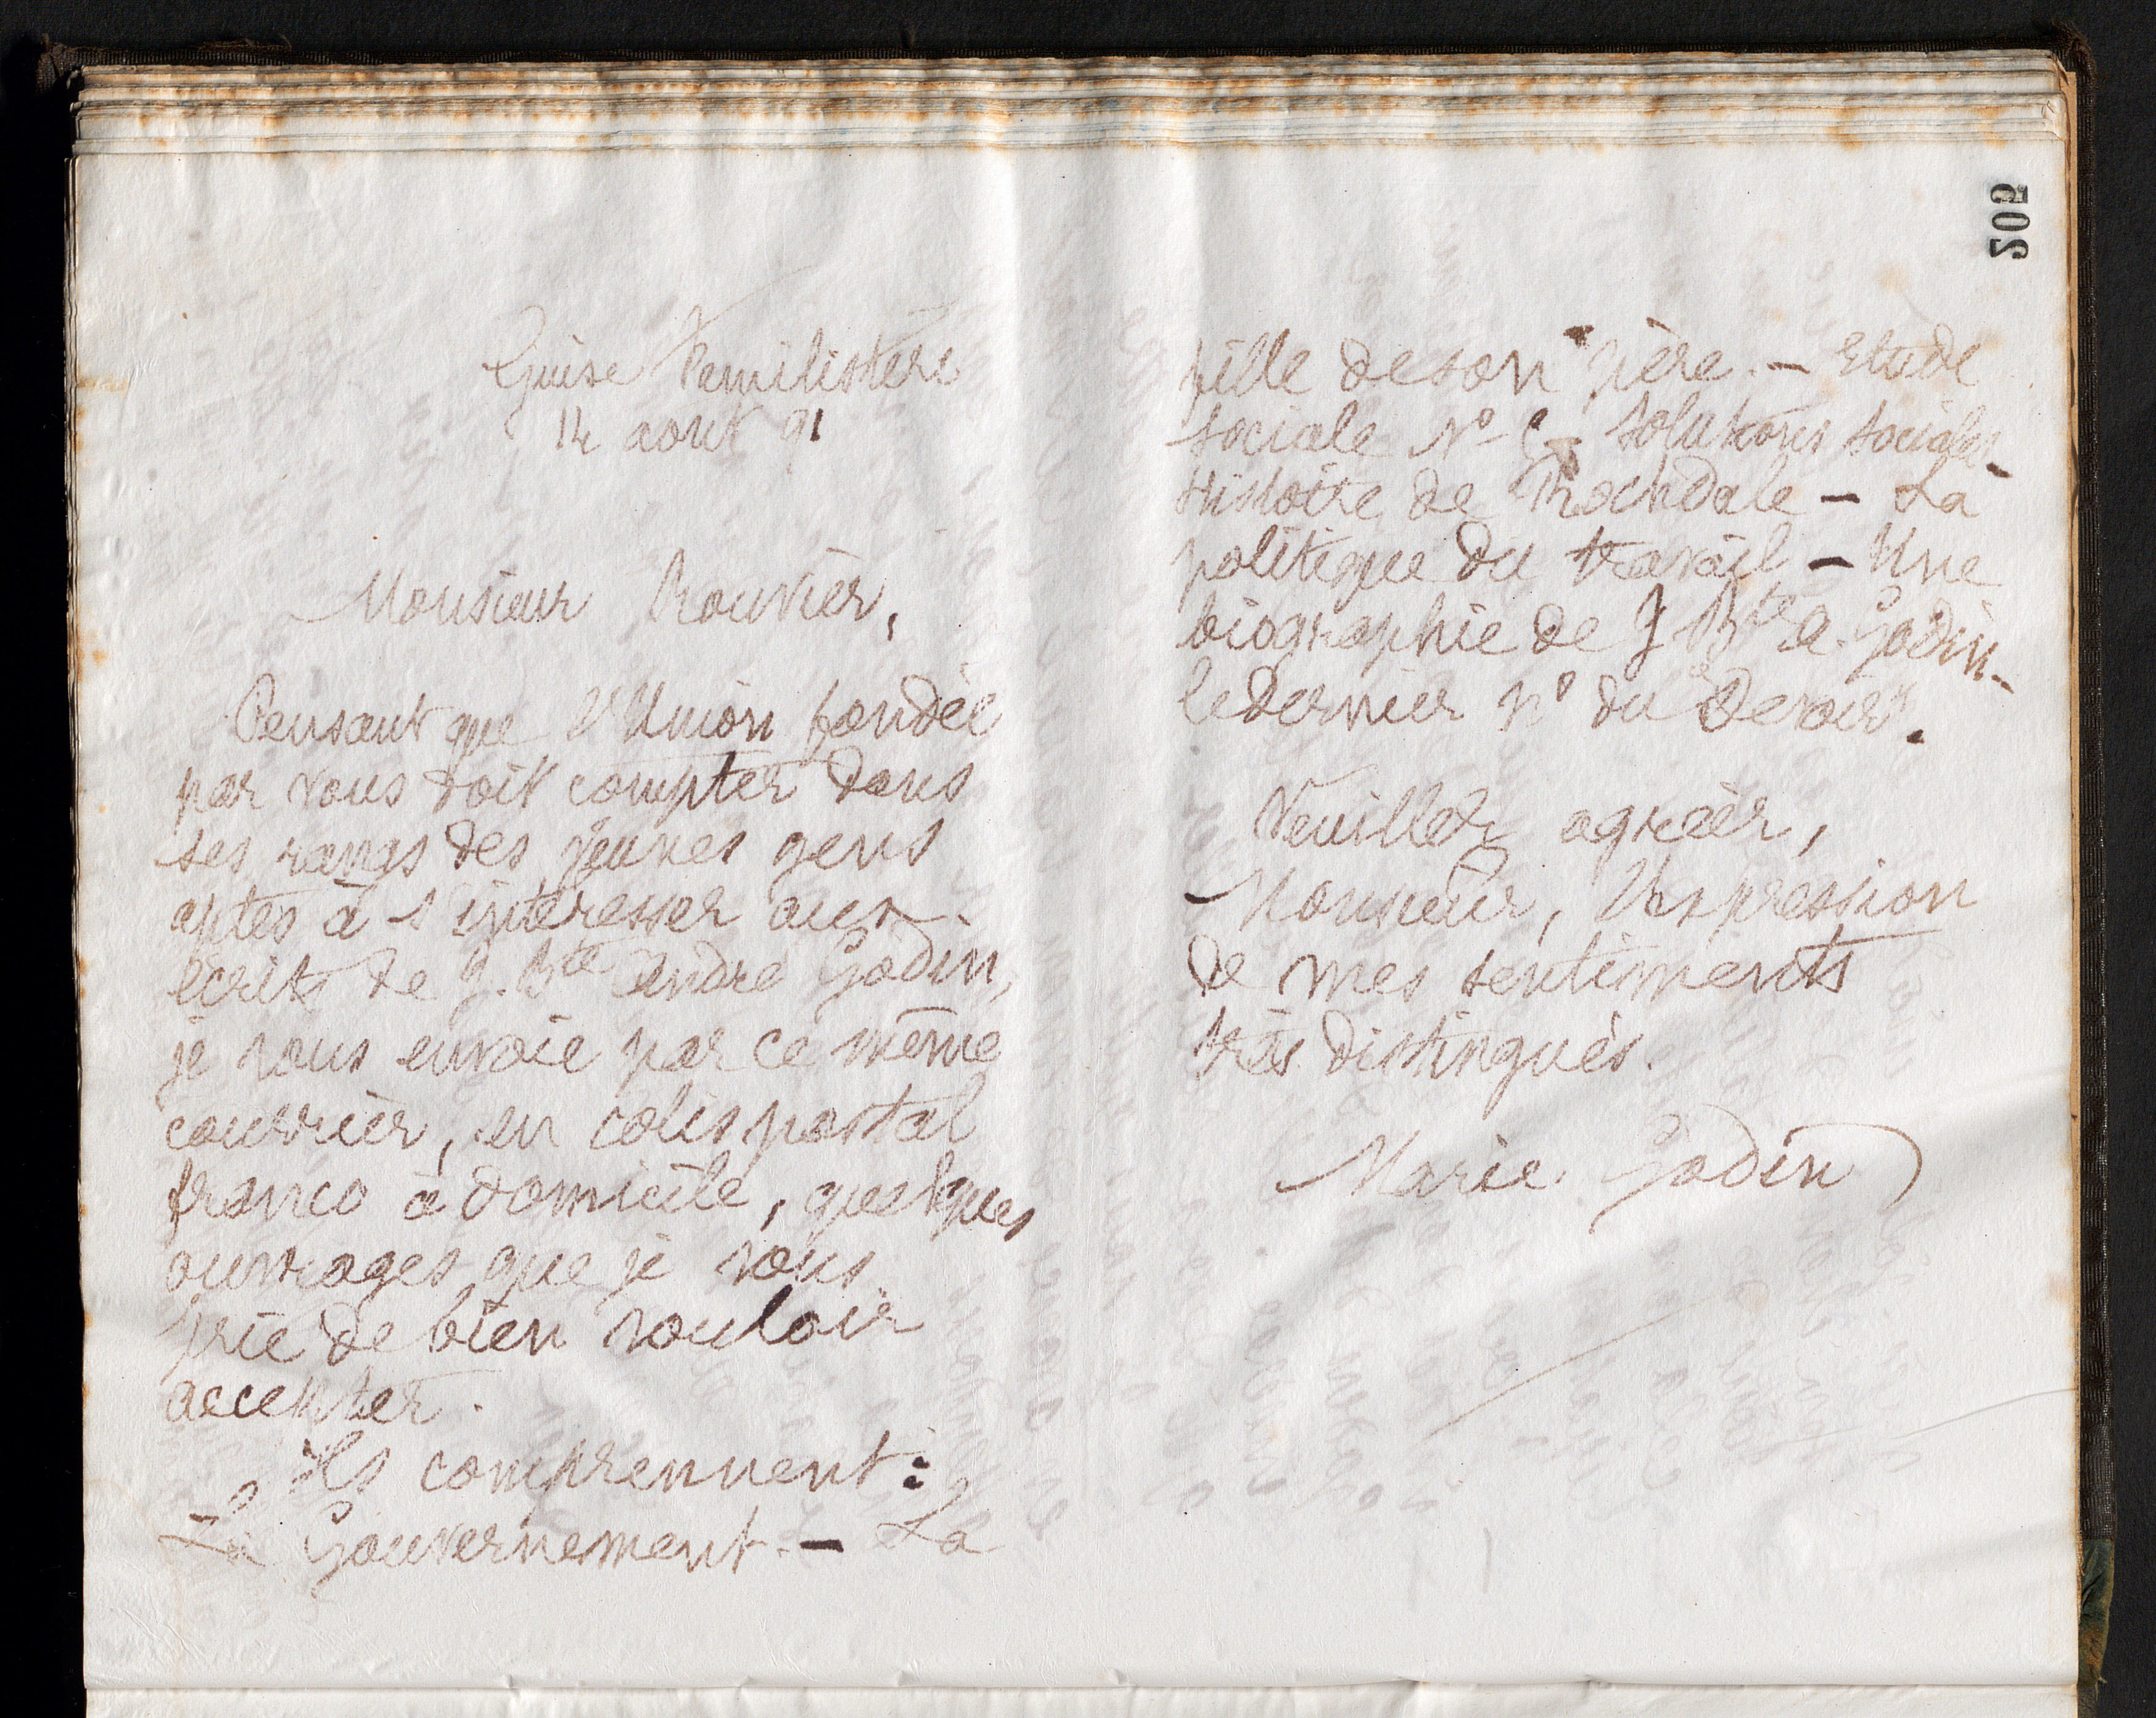 202
Guise Familistère
14 août 91
Monsieur Rouvier,
Pensant que l'Union fondée
par vous doit compter dans
ses rangs des jeunes gens
aptes à s'intéresser aux
écrits de J. Bte André Godin,
je vous envoie par ce même
courrier, en colis postal
franco à domicile, quelques
ouvrages que je vous
prie de bien vouloir
accepter.
Ils comprennent :
Le Gouvernement. - La
fille de son père. - Etude
sociale No - Solutions sociales -
Histoire de Rochdale - La
politique du travail - Une
biographie de J Bte A. Godin -
le dernier no du "Devoir".
Veuillez agréer,
Monsieur, l'expression
de mes sentiments
très distingués.
Marie Godin